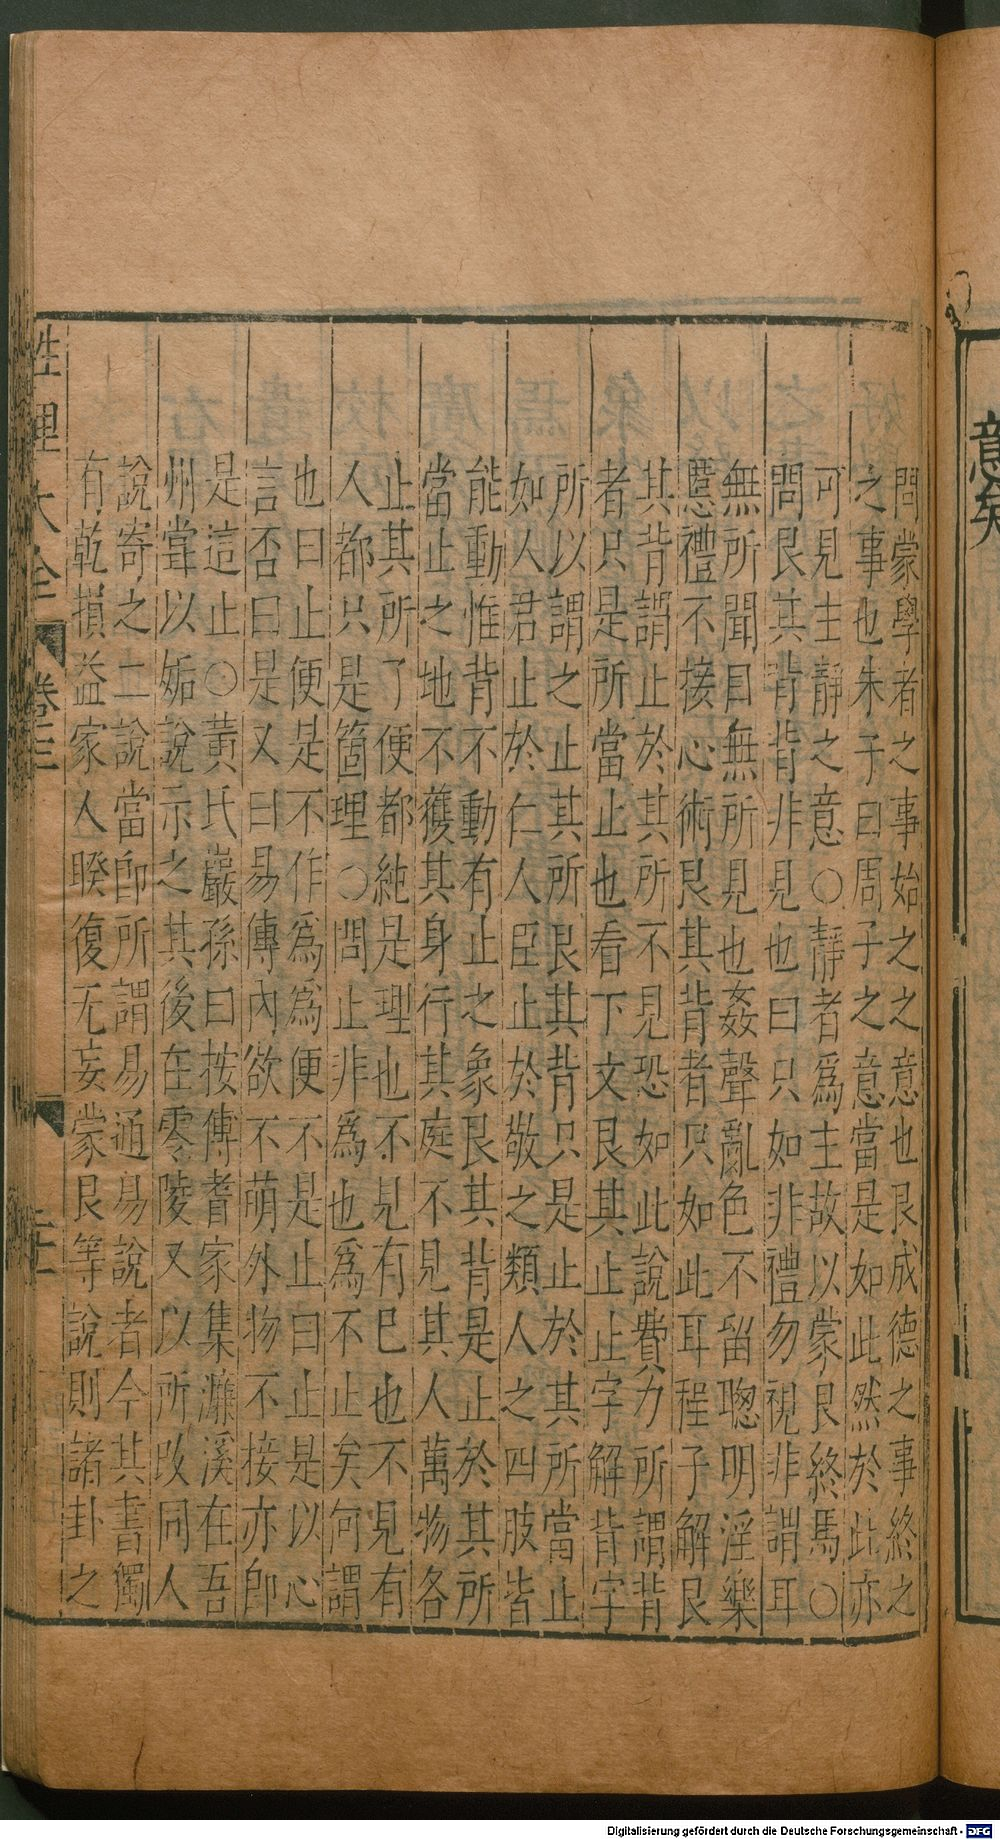 意矣
問蒙學者之事始之之意也艮成德之事終之
之事也朱子曰周子之意當是如此然於此亦
可見主靜之意○靜者為主故以蒙艮終焉○
問艮其背背非見也曰只如非禮勿視非謂耳
無所聞目無所見也姦聲亂色不留聰明淫樂
慝禮不接心術艮其背者只如此耳程子解艮
其背謂止於其所不見恐如此說費力所謂背
者只是所當止也看下文艮其止止字解背字
所以謂之止其所艮其背只是止於其所當止
如人君止於仁人臣止於敬之類人之四肢皆
能動惟背不動有止之象艮其背是止於其所
當止之地不獲其身行其庭不見其人萬物各
止其所了便都純是理也不見有己也不見有
人都只是箇理○問止非為也為不止矣何謂
也曰止便是不作為為便不是止曰止是以心
言否曰是又曰易傳內欲不萌外物不接亦即
是這止○黃氏巖孫曰按傅耆家集濂溪在吾
州嘗以姤說示之其後在零陵又以所改同人
說寄之二說當即所謂易通易說者今其書獨
有乾損益家人睽復无妄蒙艮等說則諸卦之
性理大全 卷三 二十
Digitalisierung gefördert durch die Deutsche Forschungsgemeinschaft - DFG